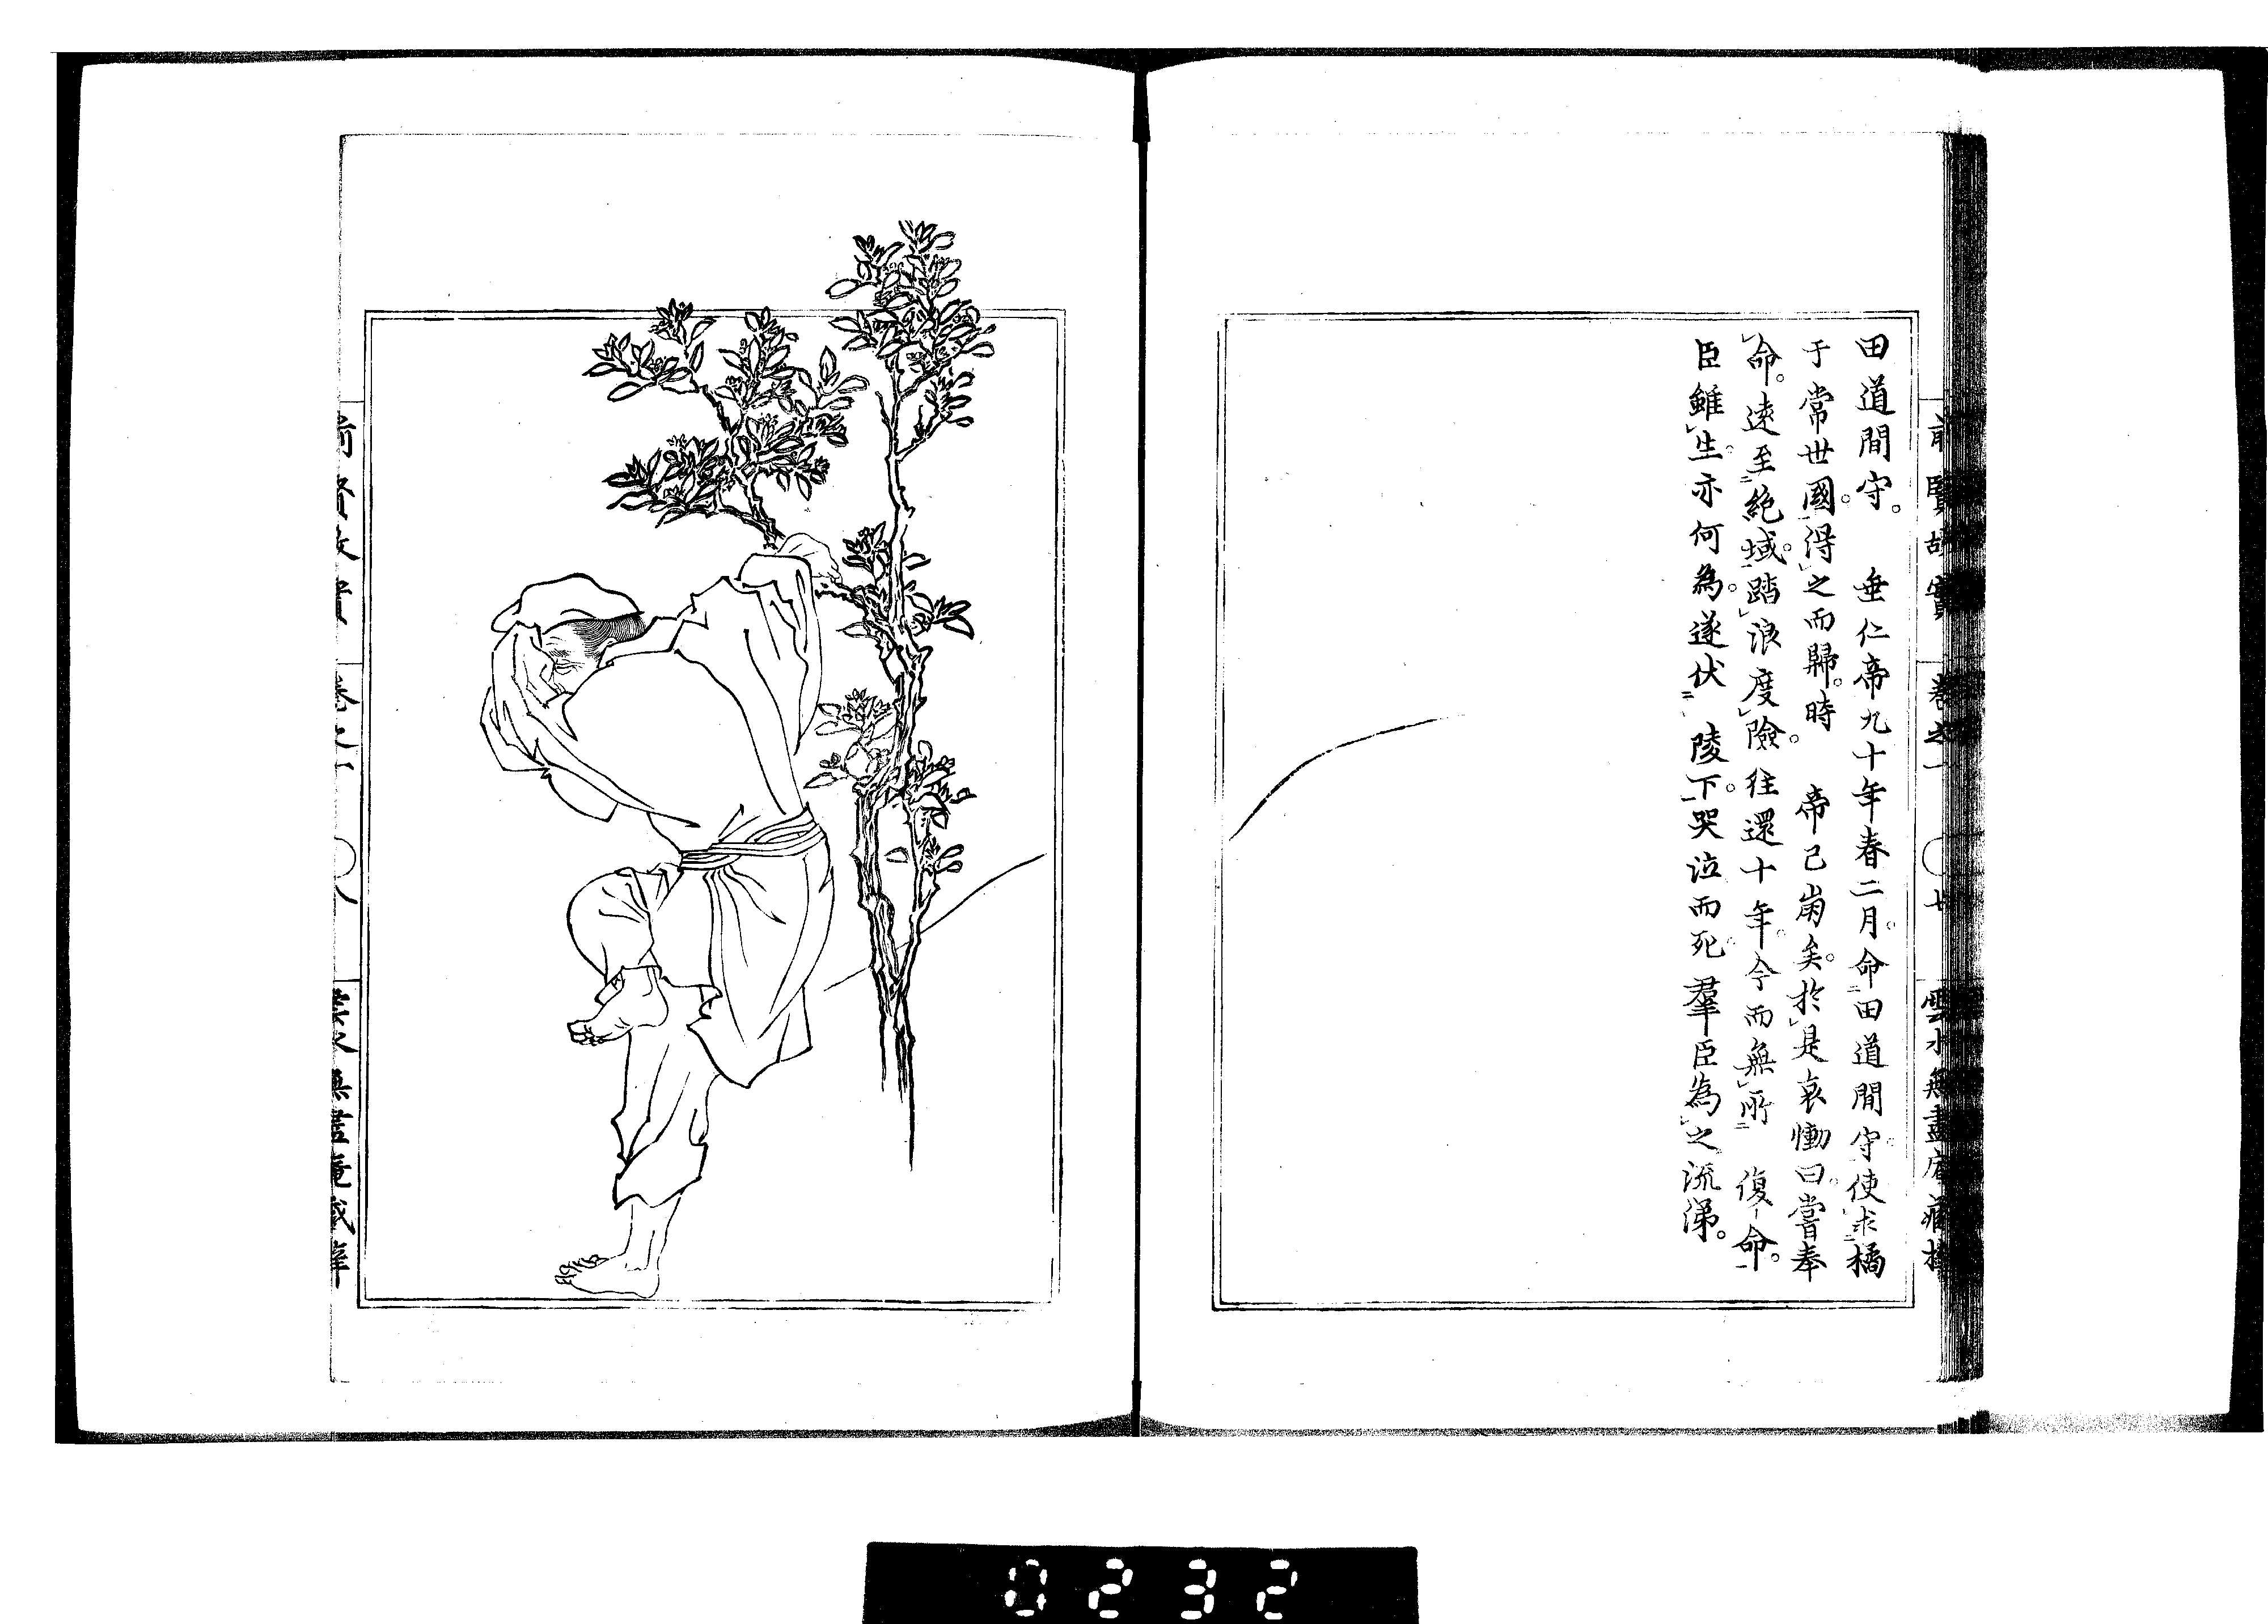 前賢故實　卷之一　〇廿　雲水無盡庵藏
田道間守。　垂仁帝九十年春二月。命田道間守。使求橘
于常世國。得之而歸。時　帝已崩矣。於是哀慟曰。嘗奉
命。遠至絕域。踏浪度險。往還十年。今而無所　復命。
臣雖生。亦何為。遂伏　陵下。哭泣而死。羣臣為之流涕。
0232